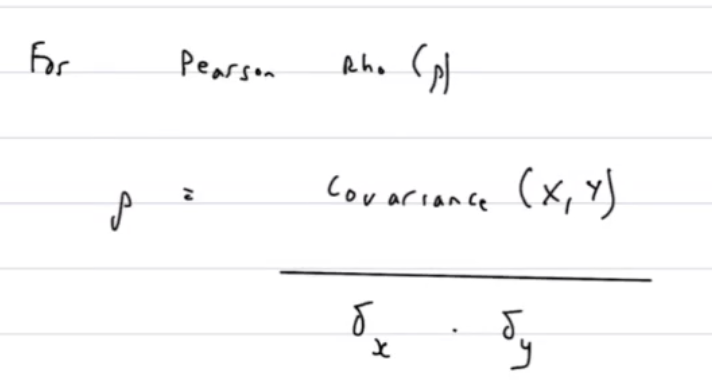 For Pearson Rho (ρ)
ρ = Covariance (X, Y)
δx . δy